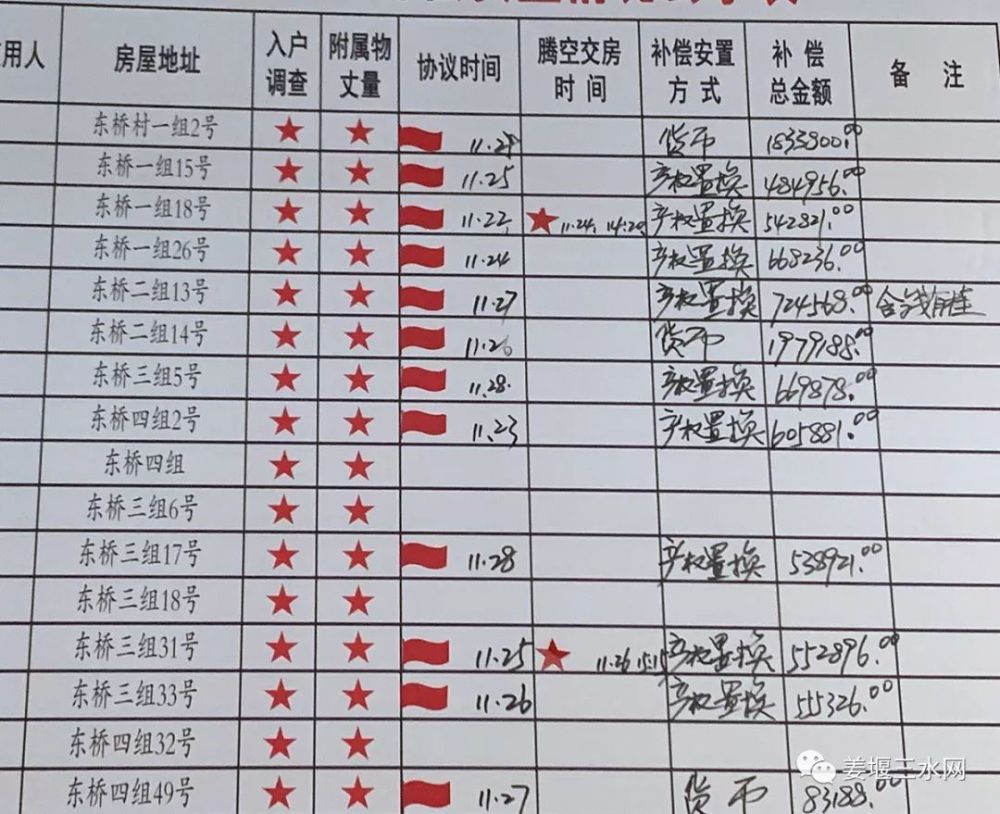 用人 房屋地址 入户调查 附属物丈量 协议时间 腾空交房时间 补偿安置方式 补偿总金额 备注
东桥村一组2号 货币
东桥一组15号 11.25 产权置换 484956.00
东桥一组18号 11.22 11.24. 14:20 产权置换 542821.00
东桥一组26号 11.24 产权置换 668236.00
东桥二组13号 11.27 产权置换 724568.00
东桥二组14号 11.26 货币 1979188.00
东桥三组5号 11.28. 产权置换 669878.00
东桥四组2号 11.23 产权置换 605881.00
东桥四组
东桥三组6号
东桥三组17号 11.28 产权置换 538921.00
东桥三组18号
东桥三组31号 11.25 11.26 15:15 产权置换 552896.00
东桥三组33号 11.26 产权置换 555326.00
东桥四组32号
东桥四组49号 11.27 货币 83188.00
姜堰三水网